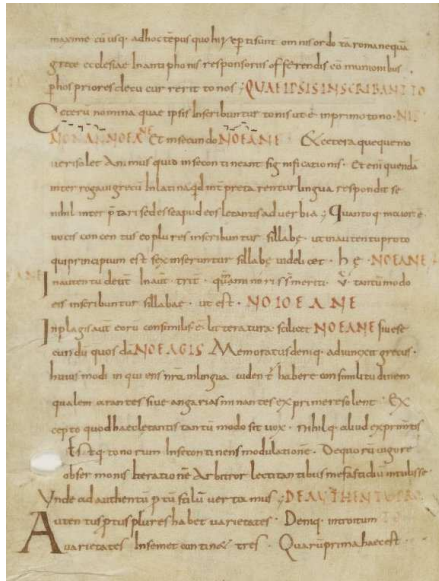 maxime cuiusq· adhoc tēpus quo hi exp̄ti sunt omnis ordo tā romane quā
grece ecclesiae In antiphonis responsoriis offerendis cōmunionibus
phos priores decucurrerit tonos ; QUAE IPSIS INSCRIBANTTO
Ceterū nomina quae ipsis Inscribuntur tonis ut ē· In primo tono· NO
NOEANE Et In secundo NOEANE· & cetera que quemo
veri solet Animus quid In se contineant significationis· Et enī quendā
interrogavi grecū In latina qd Int̄pretarentur lingua respondit se
nihil inter p̄tari sed esse apud eos letantis adverbia ; Quanto q· maior ē
vocis concentus eo plures inscribuntur sillabę· ut In autentu proto
qui principium est sex inseruntur sillabę videlicet · h ę · NOEANE
In autentu deut̄ In aut· trit̄· tantū modo
eis inscribuntur sillabae· ut est· NOIOEANE
In plagis aut eorū consimilis ē litteratura· scilicet NOEANE sive se
cundū quos dā NOEAGIS Memoratus deniq· adiunxit grecus·
huius modi inquiens nr̄a In lingua viden ē habere consimilitudinem
qualem arantes sive angarias minantes exprimere solent· Ex
cepto quod haec letantis tantū modo sit vox· Nihilq· aliud exprimentis
Estq· tonorum In se continens modulationē· De quorū vigore
observationis Iteratione Arbitror lectitantibus ne fastidiū intulisse·
Unde ad authentū p̄tū stilū vertamus ; DE AUTHENTUPRO
Autentus p̄tus plures habet varietates· Deniq· introitum
varietates In semet continet tres· Quarū prima haec est·